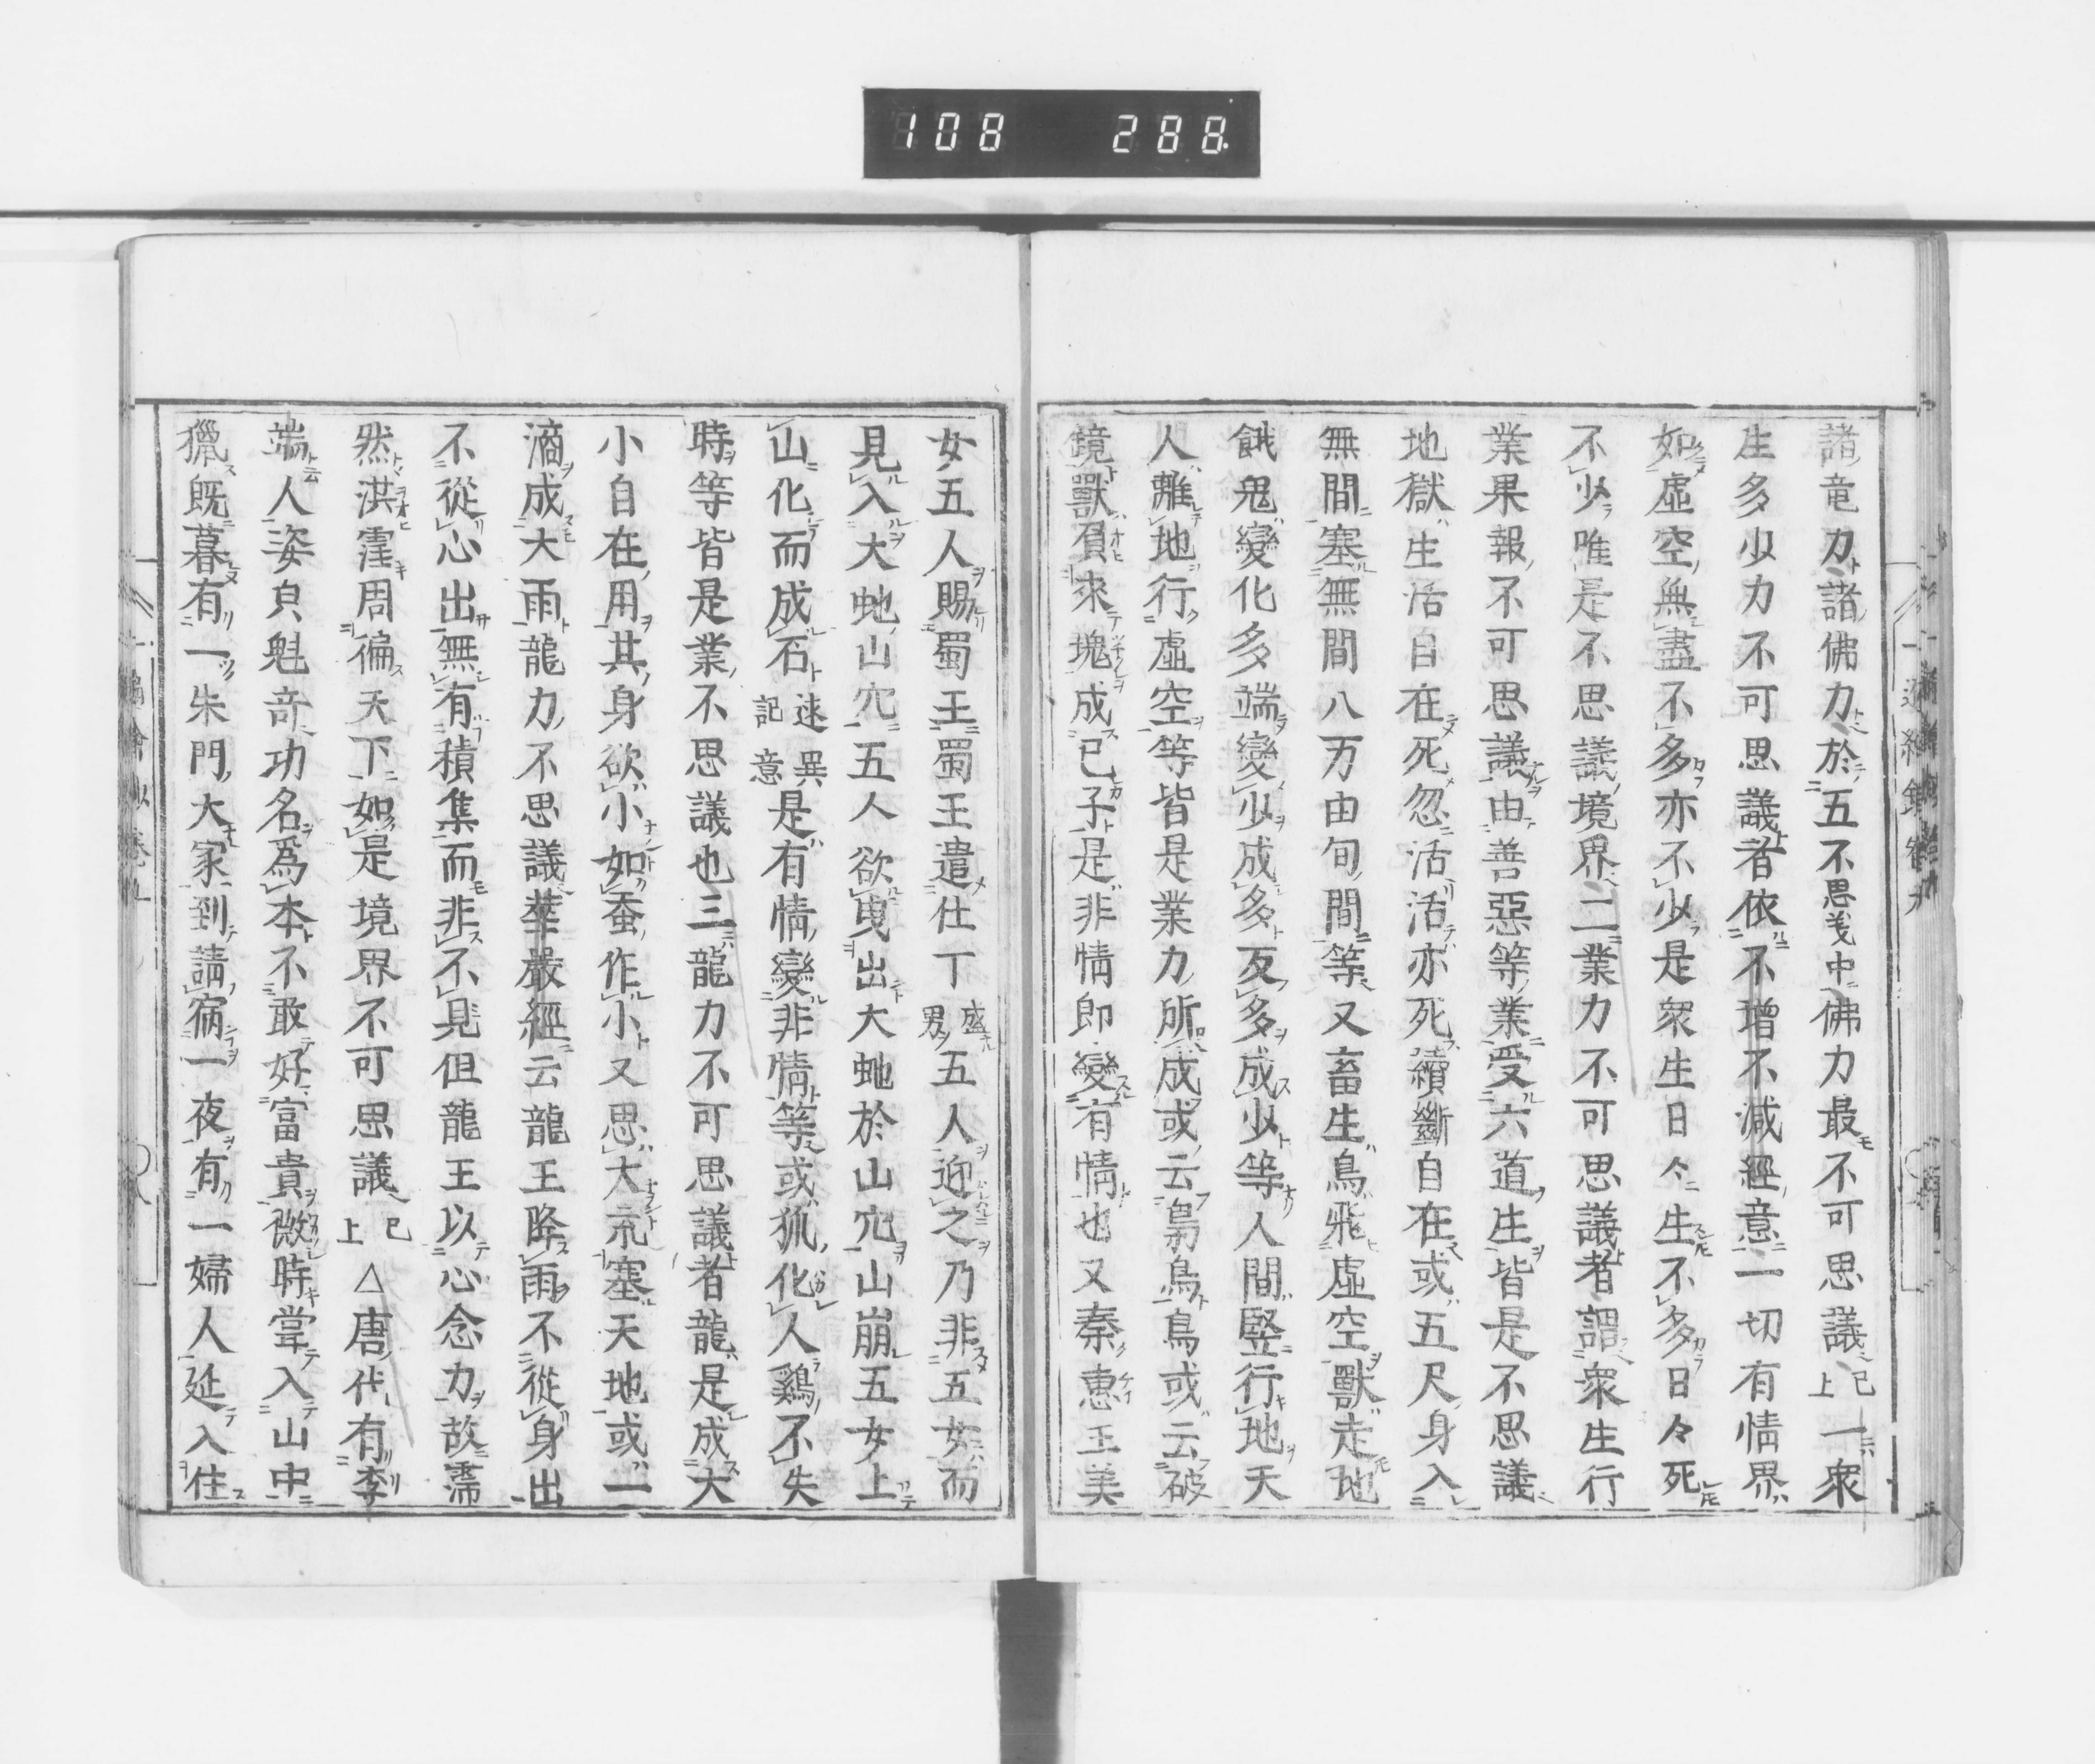 108 288
諸竜力諸佛力於五不思議中佛力最不可思議已上一衆
生多少力不可思議者依不增不減經意一切有情界
如虛空無盡不多亦不少是衆生日々生不多日々死
不少唯是不思議境界二業力不可思議者謂衆生行
業果報不可思議由善惡等業受六道生皆是不思議
地獄生活自在死忽活活亦死續斷自在或五尺身入
無間塞無間八万由旬間等又畜生鳥飛虛空獸走地
餓鬼變化多端變少成多友多成少等人間竪行地天
人離地行虛空等皆是業力所成或云梟鳥鳥或云破
鏡獸負來塊成已子是非情即變有情也又秦惠王美
女五人賜蜀王蜀王遣仕丁盛男五人迎之乃非五女而
見入大虵山穴五人欲曳出大虵於山穴山崩五女上
山化而成石述異記意是有情變非情等或狐化人鷄不失
時等皆是業不思議也三龍力不可思議者龍是成大
小自在用其身欲小如蚕作小又思大充塞天地或一
滴成大雨龍力不思議華嚴經云龍王降雨不從身出
不從心出無有積集而非不見但龍王以心念力故霈
然洪霔周徧天下如是境界不可思議已上△唐代有李
端人姿貞魁竒功名為本不敢好富貴微時甞入山中
獵既暮有一朱門大家到請宿一夜有一婦人延入住